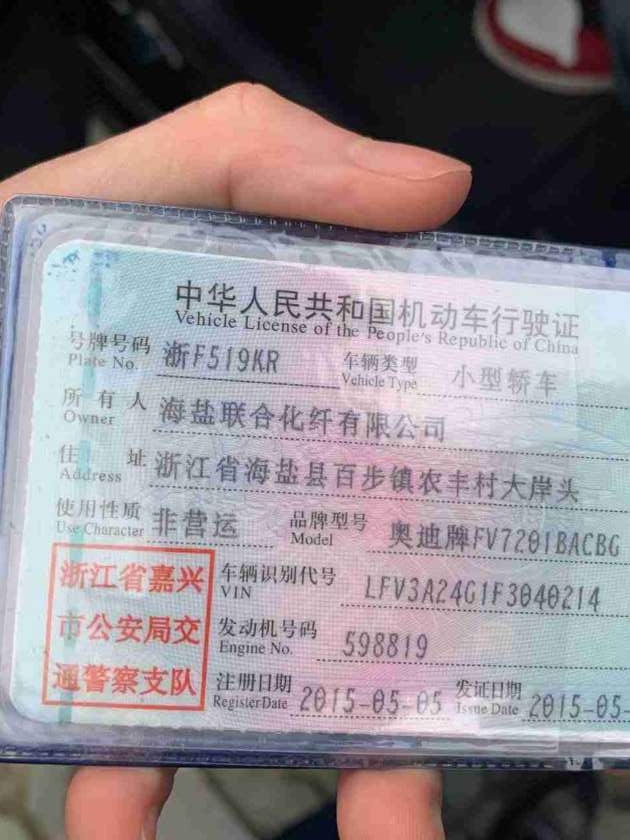 中华人民共和国机动车行驶证
Vehicle License of the People's Republic of China
号牌号码 浙F519KR 车辆类型 小型轿车
Plate No. Vehicle Type
所有人 海盐联合化纤有限公司
Owner
住址 浙江省海盐县百步镇农丰村大岸头
Address
使用性质 非营运 品牌型号 奥迪牌FV7201BACBG
Use Character Model
浙江省嘉兴 车辆识别代号 LFV3A24G1F3040214
VIN
市公安局交 发动机号码 598819
Engine No.
通警察支队 注册日期 2015-05-05 发证日期 2015-05-
Register Date Issue Date